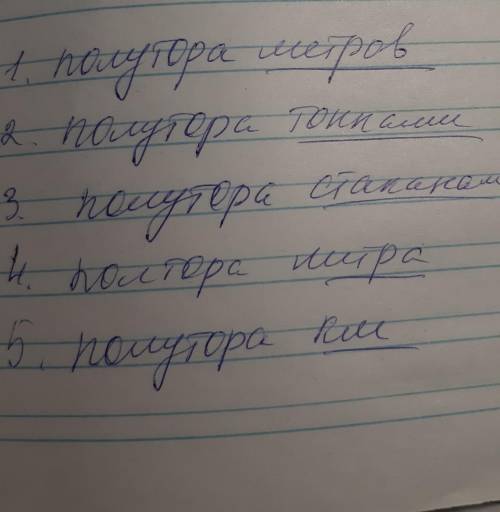 1. полутора метров
2. полутора тоннами
3. полутора стаканам
4. полтора литра
5. полутора км